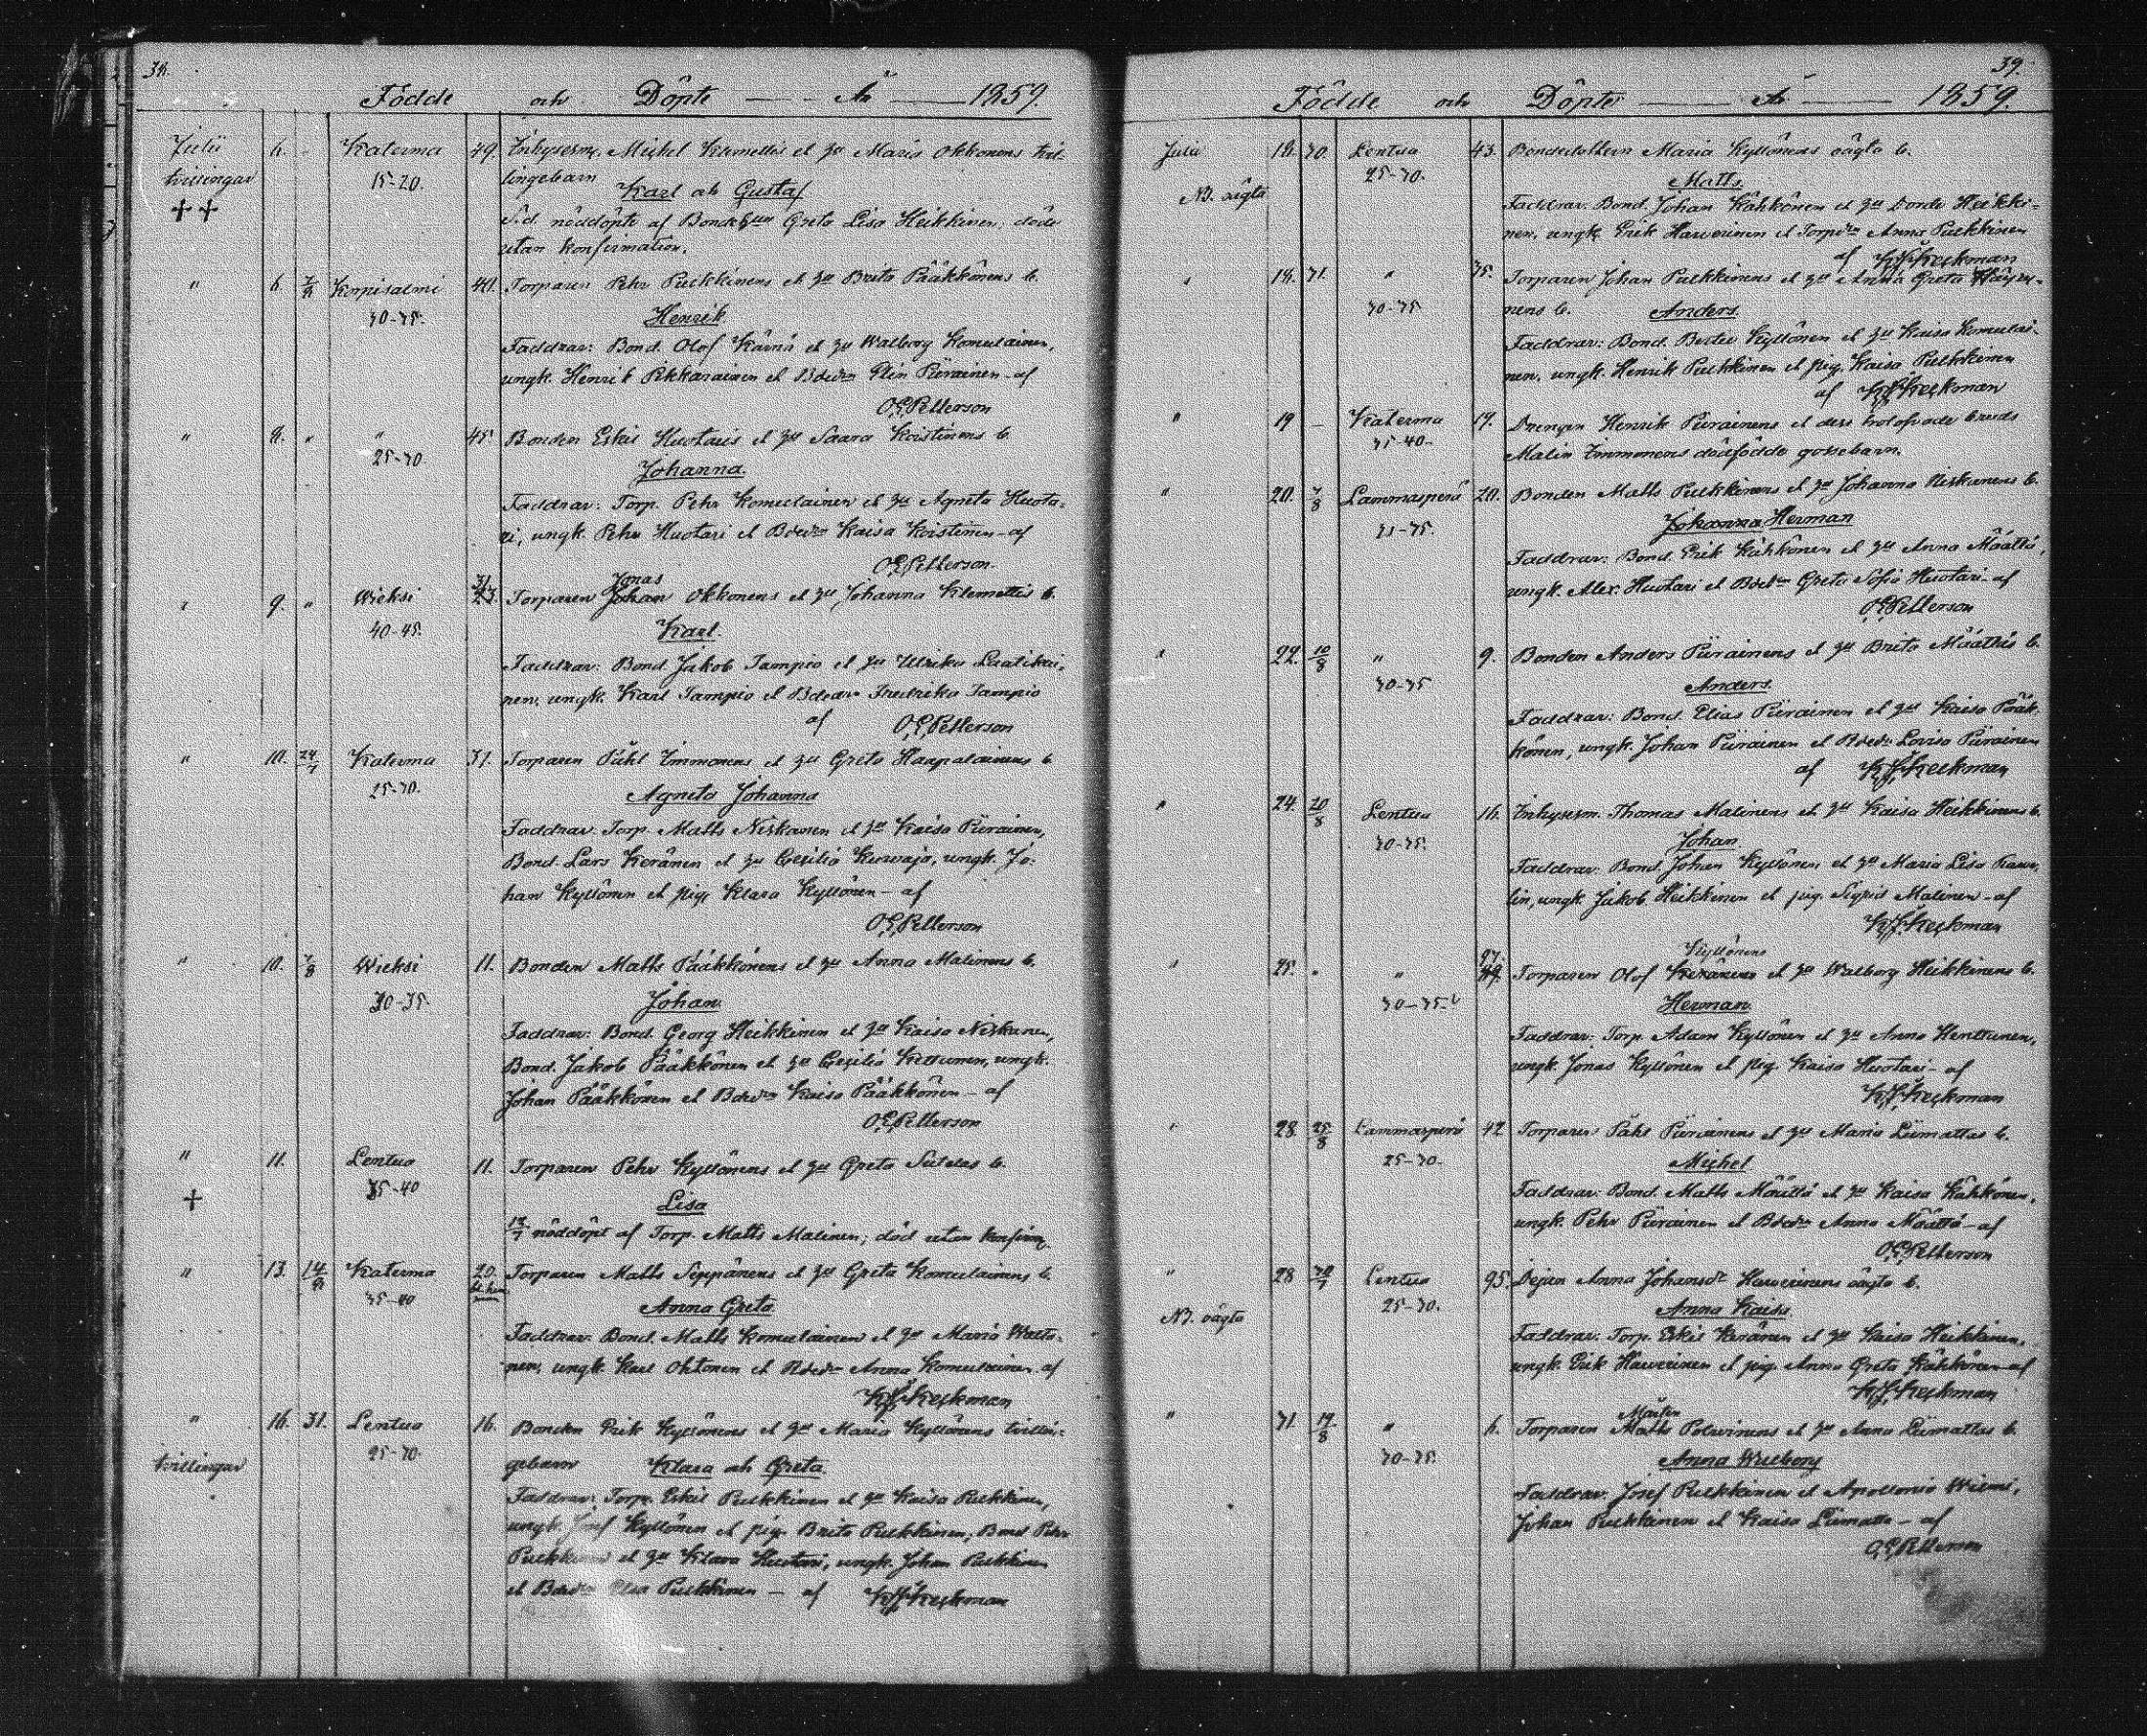 38.
Födde och Döpte — År — 1859.
Julii 6. - Katerma 49. Inhysesm. Michel Klemettis et hu Maria Okkonens tvil-
tvillingar 15-20. lingebarn
Karl ock Gustaf
++ s.d. nöddöpte af Bondehun Greta Lisa Heikkinen; döde
utan konfirmation.
" 6. 7/8 Korpisalmi 40. Torparen Pehr Pulkkinens et hu Brita Pääkkönens b.
30-35. Henrik
Faddrar: Bond. Olof Kärnä et hu Walborg Komulainen,
ungk. Henrik Pikkarainen et Bdedr Elin Piirainen - af
O.E. Petterson
" 8. " " 45 Bonden Eskil Huotaris et hu Saara Koistinens b.
25-30. Johanna
Faddrar: Torp. Pehr Komulainen et hu Agneta Huota-
ri, ungk. Pehr Huotari et Bdedr Kaisa Koistinen - af
O.E. Petterson.
31. Jonas
" 9. " Wieksi 23 Torparen Johan Okkonens et hu Johanna Klemettis b.
40-45. Karl.
Faddrar: Bond. Jakob Tampio et hu Ulrika Laatikai-
nen, ungk. Karl Tampio et Bdedr Fredrika Tampio
af O.E. Petterson
" 10. 24/7 Katerma 31. Torparen Påhl Immonens et hu Greta Haapalainens b
25-30. Agneta Johanna
Faddrar: Torp. Matts Niskanen et hu Kaisa Piirainen,
Bond. Lars Keränen et hu Cecilia Kurvaja, ungk. Jo-
han Kyllönen et pig. Klara Kyllönen - af
O.E. Petterson
" 10. 7/8 Wieksi 11. Bonden Matts Pääkkönens et hu Anna Malinens b.
30-35. Johan
Faddrar: Bond. Georg Heikkinen et hu Kaisa Niskanen,
Bond. Jakob Pääkkönen et hu Cecilia Kettunen, ungk.
Johan Pääkkönen et Bdedr Kaisa Pääkkönen - af
O.E. Petterson
" 11. Lentua 11. Torparen Pehr Kyllönens et hu Greta Sutelas b.
+ 35-40 Lisa
nöddöpt af Torp. Matts Malinen; död utan konfirm.
" 13. 14/8 Katerma 20. Torparen Matts Seppänens et hu Greta Komulainens b.
35-40 Anna Greta
Faddrar: Bond. Matts Komulainen et hu Maria
nen, ungk. Karl Oktonen et Bdedr Anna Komulainen af
K.J. Keckman
" 16. 31. Lentua 16. Bonden Erik Kyllönens et hu Maria Kyllönens tvillin-
tvillingar 25-30. gebarn Klara ock Greta.
Faddrar: Torp. Eskil Pulkkinen et hu Kaisa Pulkkinen,
ungk. Josef Kyllönen et pig. Brita Pulkkinen; Bond Pehr
Pulkkinen et hu Klara Huotari, ungk. Johan Pulkkinen
et Bdedr Elsa Pulkkinen - af K.J. Keckman
39.
Födde och Döpte — År — 1859.
Julii 18. 30. Lentua 43. Bondedottern Maria Kyllönens oägta b.
NB. oägta 25-30. Matts.
Faddrar: Bond. Johan Kähkönen et hu Dorde Heikki-
nen, ungk. Erik Haverinen et Torpdr Anna Pulkkinen
af K.J. Keckman
" 18. 31. " 35. Torparen Johan Pulkkinens et hu Anna Greta
30-35 nens b. Anders.
Faddrar: Bond. Bertil Kyllönen et hu Kaisa Komulai-
nen, ungk. Henrik Pulkkinen et pig. Kaisa Pulkkinen
af K.J. Keckman
" 19 - Katerma 19. Drengen Henrik Piirainens et dess trolofvade bruds
35-40- Malin Immonens dödfödde gossebarn.
" 20. 7/8 Lammasperä 20. Bonden Matts Pulkkinens et hu Johanna Niskanens b.
31-35. Johanna Herman
Faddrar: Bond. Erik Kähkönen et hu Anna Määttä,
ungk. Alex. Huotari et Bdedr Greta Sofia Huotari - af
O.E. Petterson
" 22. 10/8 " 9. Bonden Anders Piirainens et hu Brita Määttäs b.
30-35 Anders.
Faddrar: Bond. Elias Piirainen et hu Kaisa Pääk-
könen, ungk. Johan Piirainen et Bdedr Lovisa Piirainen
af K.J. Keckman
" 24. 20/8 Lentua 16. Inhysesm. Thomas Malinens et hu Kaisa Heikkinens b.
30-35. Johan
Faddrar: Bond. Johan Kyllönen et hu Maria Lisa
lin, ungk. Jakob Heikkinen et pig. Sigrid Malinen - af
K.J. Keckman
97. Kyllönens
" 25. " " 49. Torparen Olof Keränens et hu Walborg Heikkinens b.
30-35. Herman
Faddrar: Torp. Adam Kyllönen et hu Anna Henttunen,
ungk. Jonas Kyllönen et pig. Kaisa Huotari - af
K.J. Keckman
" 28. 25/8 Lammasperä 42 Torparen Påhl Piirainens et hu Maria Liimattas b.
25-30. Michel
Faddrar: Bond. Matts Määttä et hu Kaisa Kähkönen,
ungk. Pehr Piirainen et Bdedr Anna Määttä - af
O.E. Petterson
" 28 30/7 Lentua 95. Dejan Anna Johansdr Haverinens oägta b.
NB. oägta 25-30. Anna Kaisa.
Faddrar: Torp. Eskil Keränen et hu Kaisa Heikkinen,
ungk. Erik Haverinen et pig. Anna Greta Kähkönen - af
K.J. Keckman
Mårten
" 31. 19/8 " 6. Torparen Matts Polvinens et hu Anna Liimattas b.
30-35. Anna Walborg
Faddrar: Josef Pulkkinen et Apollonia Wilmi,
Johan Pulkkinen et Kaisa Liimatta - af
O.E. Petterson